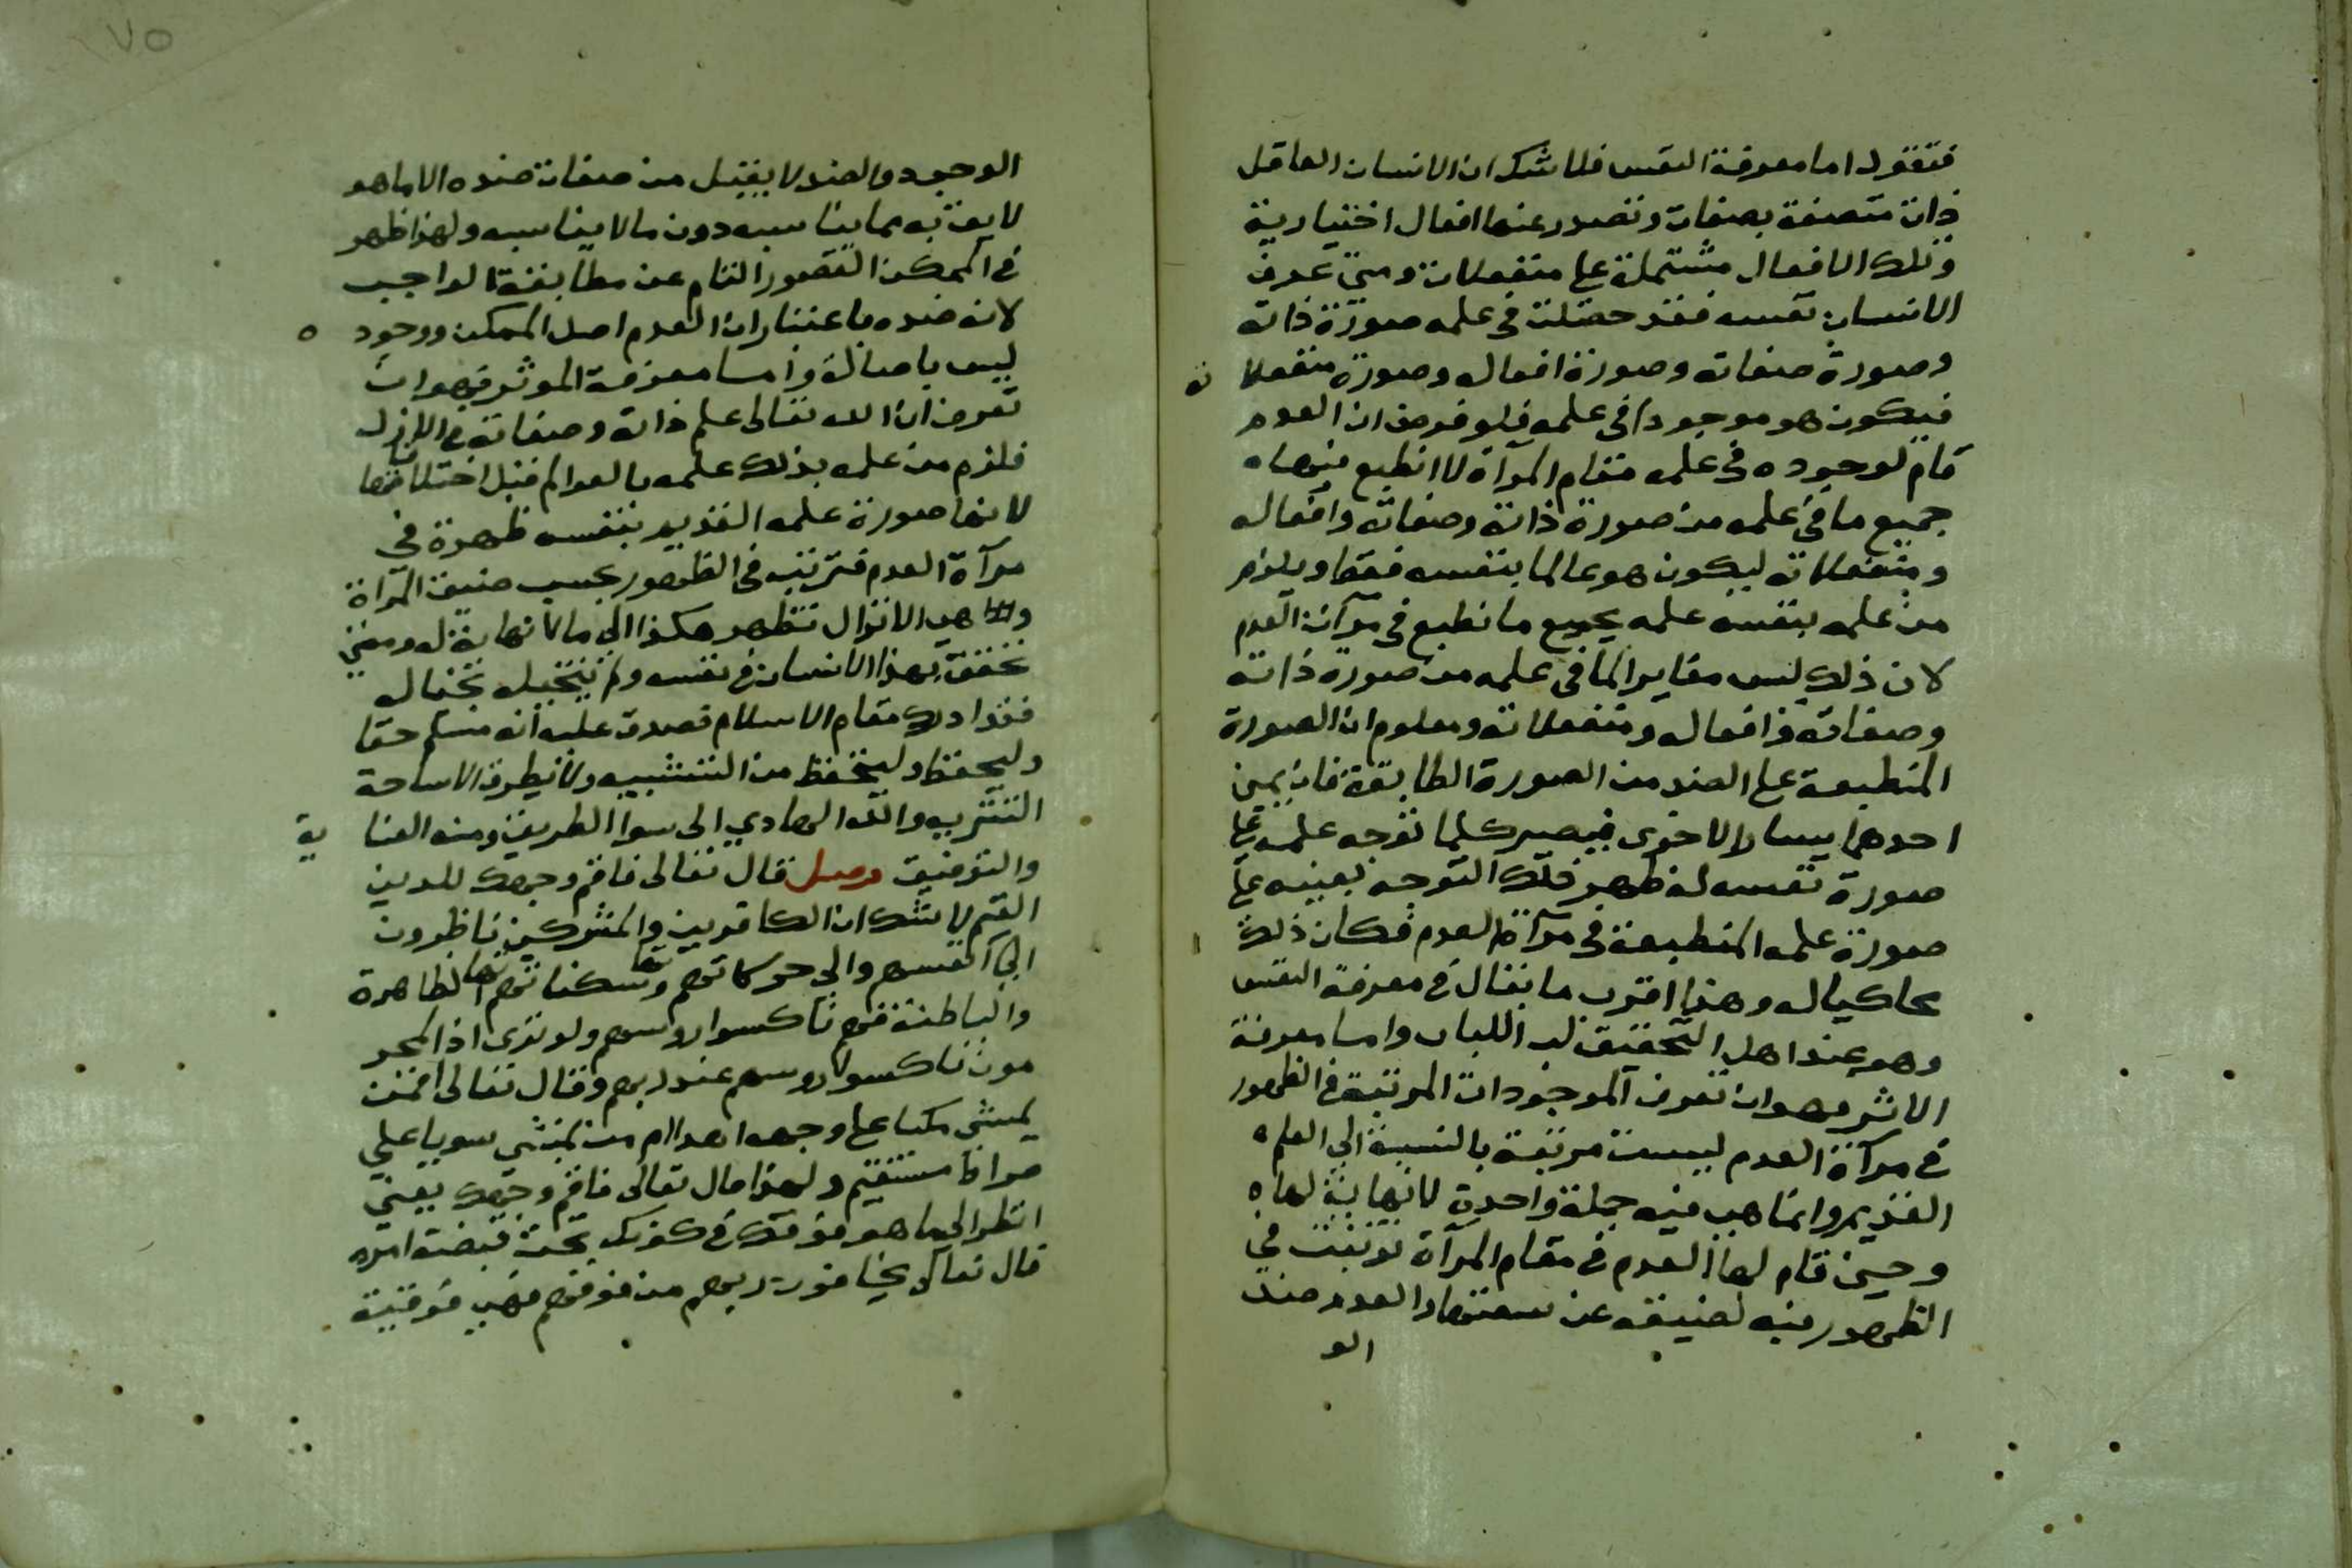 فنقول اما معرفة النفس فلا شك ان الانسان العاقل
ذات متصفة بصفات وتصدر عنها افعال اختيارية
وتلك الافعال مشتملة على منفعلات ومتى عرف
الانسان نفسه فقد حصلت في علمه صورة ذاته
وصورة صفاته وصورة افعاله وصورة منفعلا ته
فيكون هو موجودا في علمه فلو فرض ان العدم
قام لوجوده في علمه مقام المرآة لا انطبع فيها ه
جميع ما في علمه من صورة ذاته وصفاته وافعاله
ومنفعلاته ليكون هو عالما بنفسه فقط ويلزم
من علمه بنفسه علمه بجميع ما نطبع في مرآت العدم
لان ذلك ليس مغايرا لما في علمه من صورة ذاته
وصفاته وافعاله ومنفعلاته ومعلوم ان الصورة
المنطبعة على الضد من الصورة الطابقة فان يمين
احدهما يسار الاخرى فيصير كلما توجه علمه على
صورة نفسه له ظهر ذلك التوجه بعينه على
صورة علمه المنطبعة في مرآة العدم فكان ذلك ا
محاكيا له وهذا اقرب ما يقال في معرفة النفس
وهو عند اهل التحقيق لب اللباب واما معرفة
الاثر فهو ان تعرف الموجودات المرتبة في الظهور
في مرآة العدم ليست مرتبة بالنسبة الى العلم ه
القديم وانما هي فيه جملة واحدة لا نهاية لها ه
وحين قام لها العدم في مقام المرآة ترتبت في
الظهور فيه لضيقه عن سعتها والعدم ضد
الو
٧٥
الوجود والضد لا يقبل من صفات ضده الا ما هو
لايق به مما يناسبه دون ما لا يناسبه ولهذا ظهر
في الممكن القصور التام عن مطابقة الواجب
لانه ضده باعتبار ان العدم اصل الممكن ووجود ه
ليس باصالة واما معرفة الموثر فهو ان
تعرف ان الله تعالى علم ذاته وصفاته في الازل
فلزم من علمه بذلك علمه بالعوالم قبل اختلافها
لانها صورة علمه القديم بنفسه ظهرة في
مرآة العدم فترتب في الظهور بحسب ضيق المرآة
هي الاتزال تظهر هكذا الى مالا نهاية له ومتى
تحقق بهذا الانسان في نفسه ولم يتخيله بخياله
فقد ادرك مقام الاسلام فصدق عليه انه مسلم حقا
وليحفظ وليتحفظ من التشبيه ولا يطرق الا ساحة
التنزيه والله الهادي الى سوا الطريق ومنه العنا ية
والتوفيق وصل قال تعالى فاقم وجهك للدين
القيم لا شك ان الكافرين والمشركين ناظرون
الى انفسهم والى حركاتهم وسكناتهم الظاهرة
والباطنة فهم ناكسوا روسهم ولو ترى اذ المجر
مون ناكسوا روسهم عند ربهم وقال تعالى افمن
يمشي مكبا على وجهه اهدا ام من يمشي سويا على
صراط مستقيم ولهذا قال تعالى فاقم وجهك يعني
انظر الى ما هو فوقك في كونك تحت قبضة امره
قال تعالى يخافون ربهم من فوقهم فهي فوقية